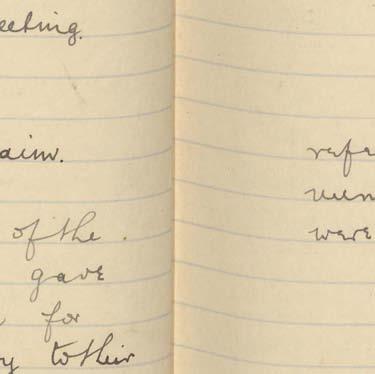 eeting.
aim.
of the
gave
for
y to their
refe
were